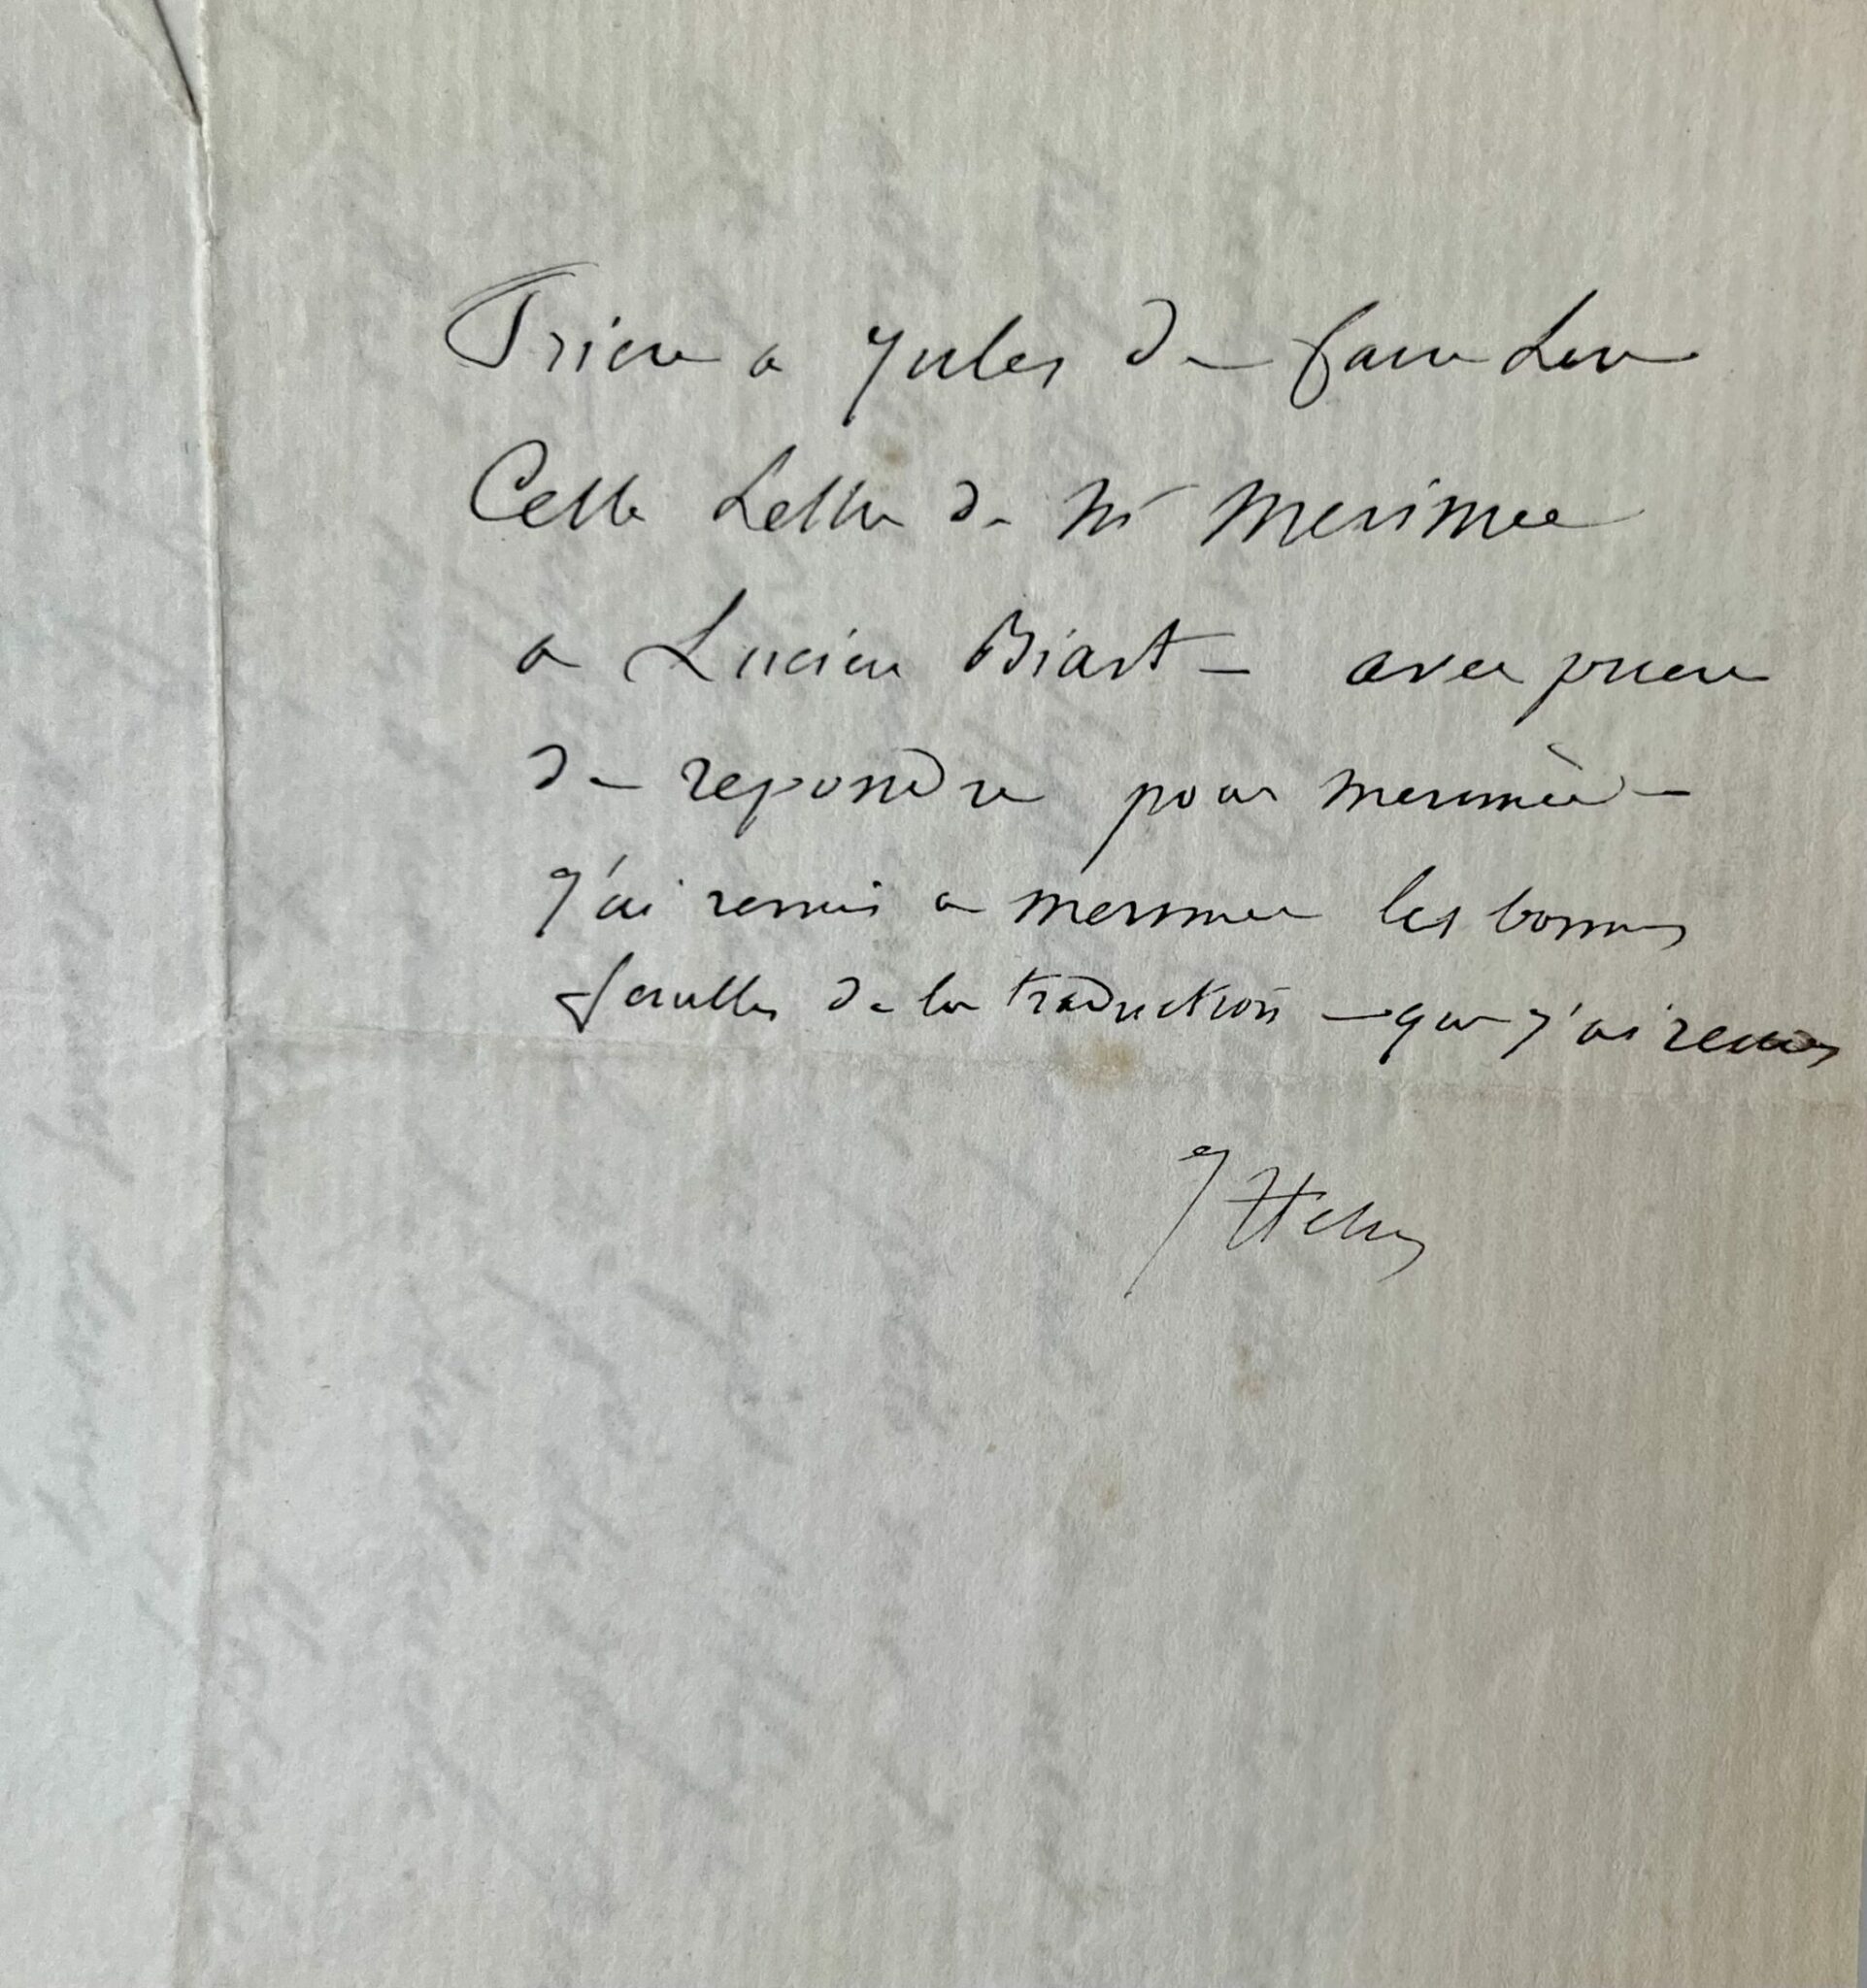 Priere a Jules de faire Lire
Cette Lettre de Mr Merimee
a Lucien Biart — avec priere
de repondre pour merimée —
J'ai remis a merimee les bonnes
feuilles de la traduction — que j'ai
JHetzel